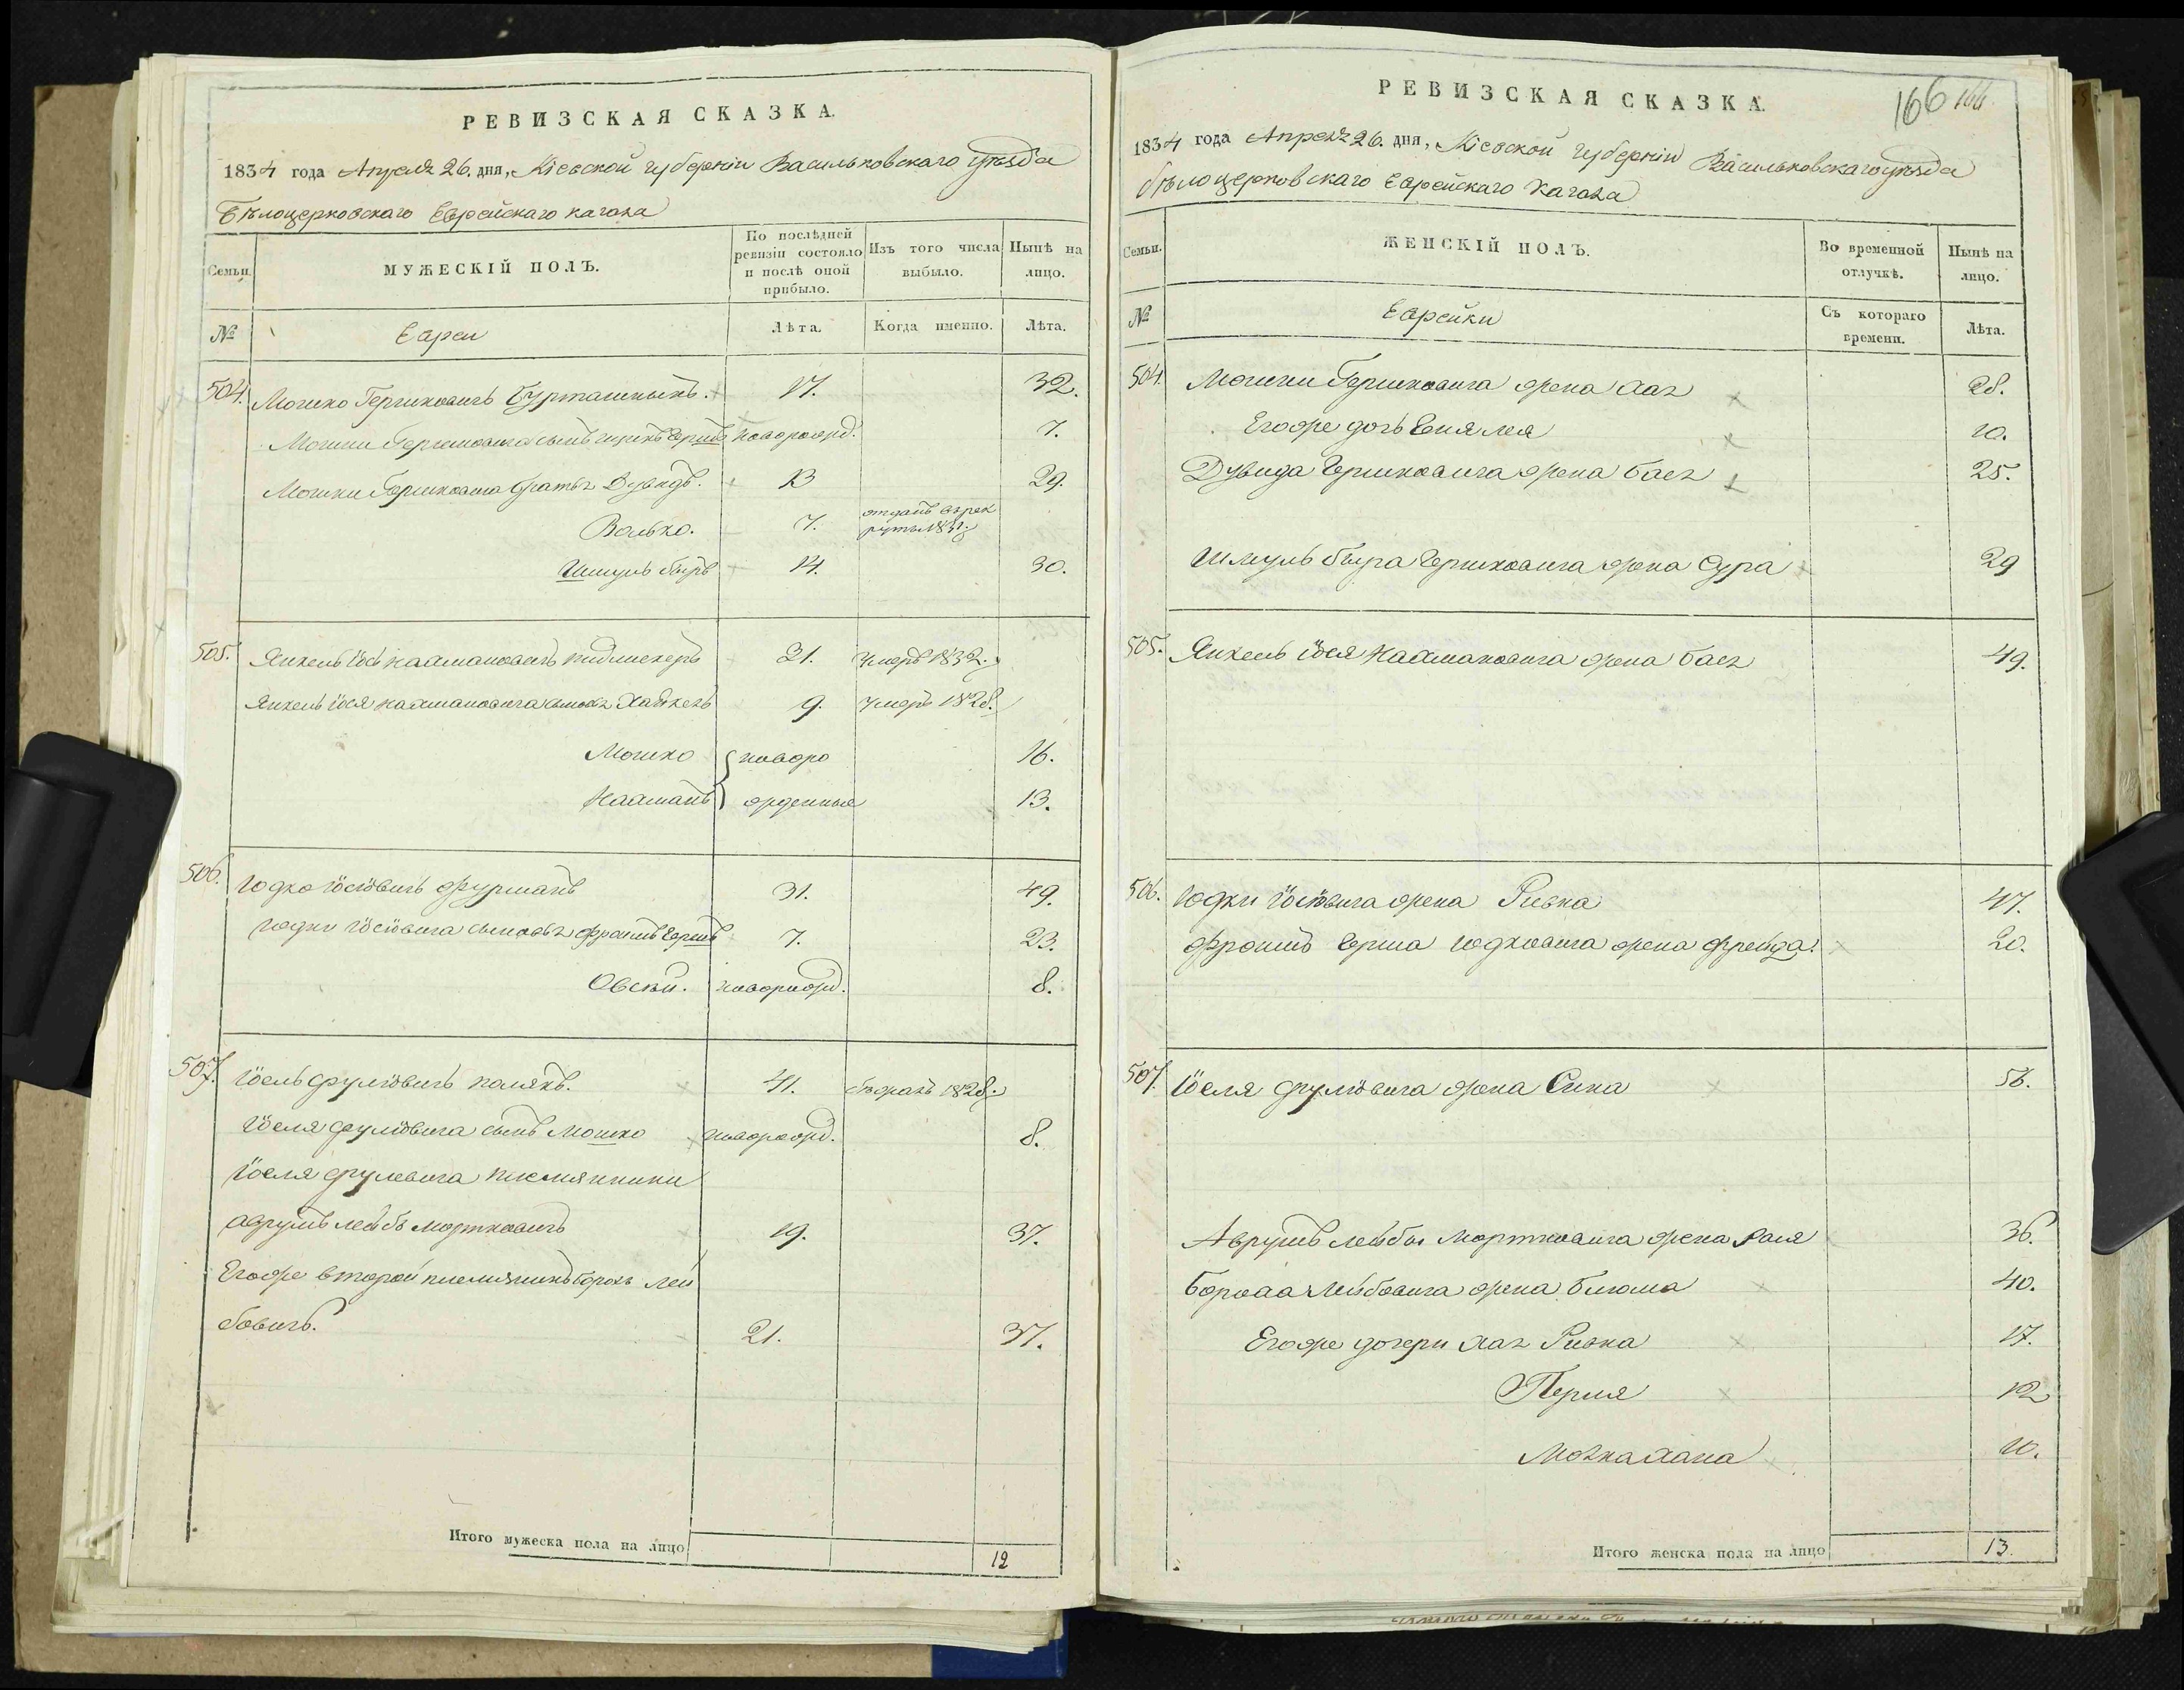 РЕВИЗСКАЯ СКАЗКА.
1834 года Апреля 26. дня, Кіевской губерніи Васильковскаго уѣзда
Бѣлоцерковскаго Еврейскаго кагала
Семьи.
МУЖЕСКІЙ ПОЛЪ.
По послѣдней ревизіи состояло и послѣ оной прибыло.
Изъ того числа выбыло.
Нынѣ на лицо.
№
Евреи
Лѣта.
Когда именно.
Лѣта.
504. Мошко Гершковичъ 17. 32.
Мошки Гершковича сынъ Гершъ новорожд. 7.
Мошки Гершковича братья Дувидъ. 13 29.
Волько. 7. отданъ въ рек
руты 1831.
Шмуль Беръ 14. 30.
505. Янкель Іось Нахмановичъ 21. умеръ 1832.
Янкель Іося Нахмановича сыновья Хаскель 9. умеръ 1828.
Мошко новоро 16.
Нахманъ жденные 13.
506. Юдко Іосіовичъ Фурманъ 31. 49.
Юдки Іосіовича сыновья Фроимъ Гершъ 7. 23.
Овсей. новорожд. 8.
507. Іоель Сруліовичъ Полякъ. 41. бежалъ 1828.
Іоеля Сруліовича сынъ Мошко новорожд. 8.
Іоеля Срулевича племянники
Аврумъ Лейбъ Мортковичъ 19. 37.
Егоже второй племяникъ Борохъ Лей
бовичъ. 21. 37.
Итого мужеска пола на лицо 12
РЕВИЗСКАЯ СКАЗКА.
166 166
1834 года Апреля 26. дня, Кіевской губерніи Васильковскаго уѣзда
Бѣлоцерковскаго Еврейскаго Кагала
Семьи.
ЖЕНСКІЙ ПОЛЪ.
Во временной отлучкѣ.
Нынѣ на лицо.
№
Еврейки
Съ котораго времени.
Лѣта.
504. Мошки Гершковича жена Хая 28.
Егоже дочь Еня Лея 10.
Дувида Гершковича жена Бася 25.
Шмуль Бера Гершковича жена Сура 29
505. Янкель Іося Нахмановича жена Бася 49.
506. Юдки Іосіовича жена Ривка 47.
Фроимъ Герша Юдковича жена Фрейда. 20.
507. Іоеля Сруліовича жена 56.
Аврумъ Лейбы Мортковича жена Рася 36.
Бороха Лейбовича жена Блюма 40.
Егоже дочери Хая Ривка 17.
Перля 12
Хана 10.
Итого женска пола на лицо 13.